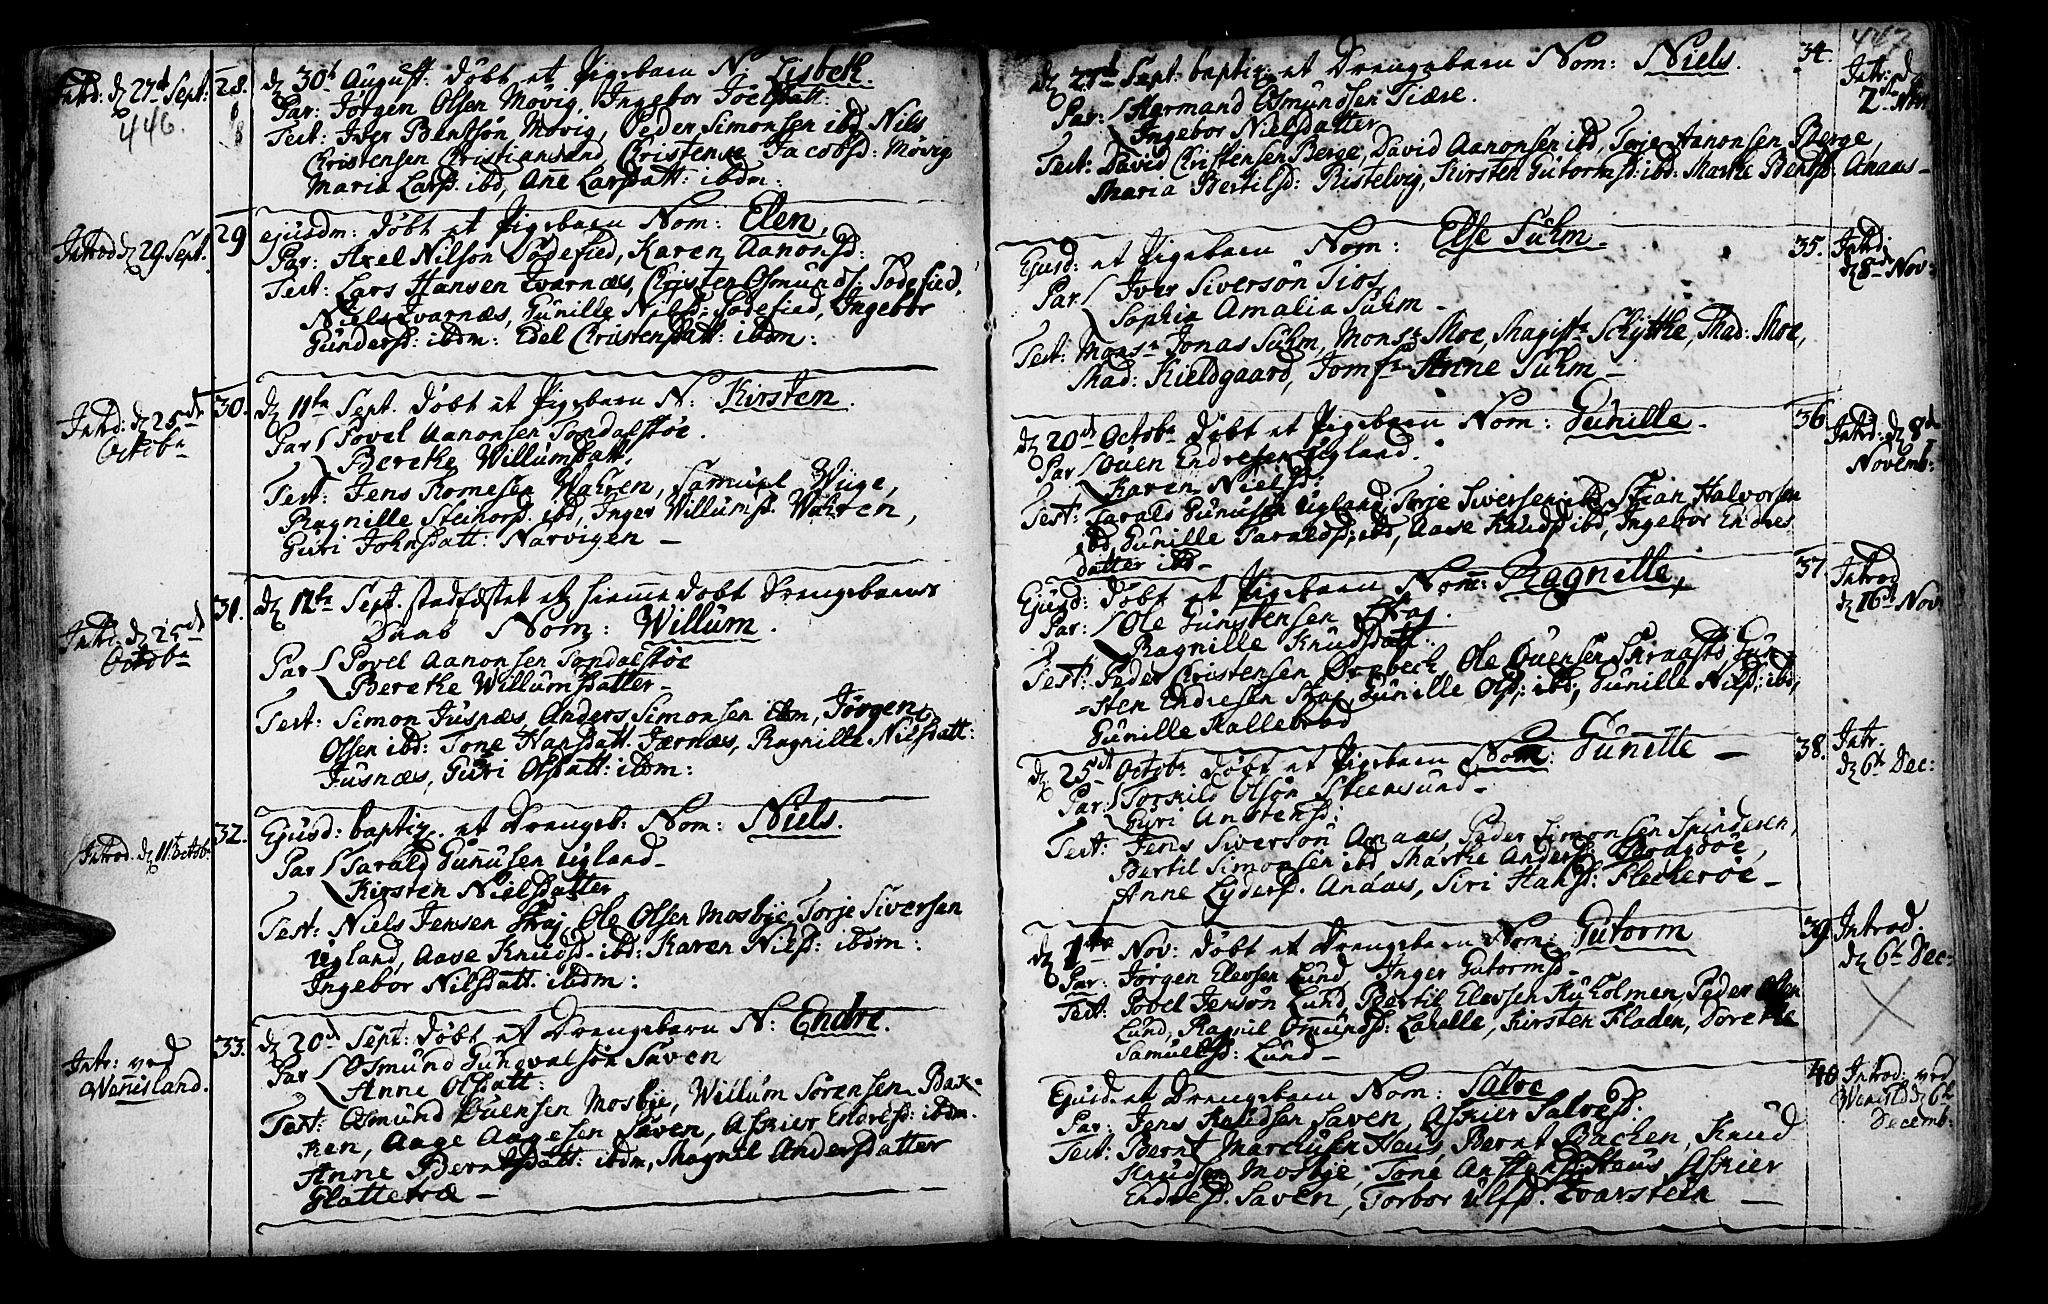 446.
Intrd. d 27d Sept:
28.
d 30t August: døbt et Pigebarn N. Lisbeth.
Par: Jørgen Olsen Møvig, Ingebor Joelsdatt:
Test: Iver Bentsøn Møvig, Peder Simonsen ibd, Nils
Christensen Christiansand, Christense Jacobsd: Møvig
Maria Larsd. ibd, Ane Larsdatt: ibdm:
Introd d 29. Sept.
29
ejusdm: døbt et Pigebarn Nom: Elen,
Par: Axel Nilson Dødefied, Karen Aanonsd:
Test: Lars Hansen Qvarnæs, Christen Osmunds. Dødefied,
Niels Qvarnæs, Gunille Nilsd: Dødefied, Ingebor
Gundersd: ibdm: Edel Christensdatt: ibdm:
Intrd: d 25de
Octobr
30.
d 11te Sept. døbt et Pigebarn N: Kirsten.
Par Povel Aanonsen Søndalstøe.
Bereke Willumsdatt.
Test: Jens Romesen Wahren, Samuel Wiige,
Ragnille Steinorsd. ibd, Inger Willumsd. Wahren,
Guri Johnsdatt: Narvigen –
Intrd. d 25de
Octobr
31.
d 12te Sept. stadfæstet et hiemmedøbt Drengebarns
Daab Nom: Willum.
Par Povel Aanonsen Søndalstøe
Bereke Willumsdatter –
Test: Simon Jusnæs, Anders Simonsen ibdm, Jørgen
Olsen ibd: Tone Hansdatt. Jærnæs, Ragnille Nilsdatt:
Jusnæs, Guri Olsdatt: ibdm:
Introd. d 11t Octobr
32.
Ejusd: baptiz. et Drengeb: Nom: Niels.
Par Tarald Gunusen Ugland –
Kirsten Nielsdatter,
Test: Niels Jensen Skaj, Ole Olsen Mosbye, Torje Siversen
Ugland, Aase Knudsd– ibd: Karen Nielsd: ibdm:
Ingebor Nilsdatt. ibdm:
Intr: ved
Wenisland.
33.
d 20d Sept: døbt et Drengebarn N: Endre.
Par Osmund Gunvalsøn Saven
Anne Olsdatt:
Test: Osmund Ouensen Mosbye, Willum Sørensen Bak=
ken, Aage Aagesen Saven, Askier Endresd: ibdm.
Anne Berntsdatt: ibdm, Magnil Andersdatter
Glattetræ –
447
34.
Intr: d
2den Nov
d 27de Sept: baptiz. et Drengebarn Nom: Niels.
Par: Harmand Osmundsen Tiære.
Ingebor Nielsdatter
Test: David Christensen Berge, David Aanonsen ibd, Torje Aanonsen Berge,
Maria Bertilsd: Ristelvig, Kirsten Gutormsd: ibd: Marthe Bentsd: Anaas –
35.
Intrd:
d 8de Nov:
Ejusd: et Pigebarn Nom: Else Suhm –
Par Iver Siversøn Tios
Sophia Amalia Suhm –
Test: Monsr Jonas Suhm, Monsr Moe, Magistr Schytthe, Mad: Moe,
Mad: Kieldgaard, Jomfr Anne Suhm –
36
Intrd: d 8de
Novemb:
d 20de Octobr døbt et Pigebarn Nom: Gunille.
Par Ouen Endresen Ugland.
Karen Nielsd:
Test: Tarald Gunusen Ugland, Torje Siversen ibd, Stian Halvorsen
ibd, Gunille Taraldsd: ibd, Aase Knudsd ibd, Ingebor Endres
datter ibd –
37.
Introd
d 16d Nov
Ejusd: døbt et Pigebarn Nom: Ragnille,
Par: Ole Gunstensen Skaj.
Ragnille Knudsdatt.
Test: Peder Christensen Ørebeck, Ole Ouensen Straastd, Gun=
=sten Endresen Skaj, Gunille Olsd: ibd, Gunille Nilsd: ibd,
Gunille Kallebrod
38.
Intr.
d 6t Dec:
d 25de Octobr døbt et Pigebarn Nom: Gunille –
Par: Torkild Olsøn Steensund –
Guri Anstensd:
Test: Jens Siversøn Anaas, Peder Simonsen Spinderen,
Bertil Simonsen ibd, Marthe Andersd: Dragøe,
Anne Eydersd. Anaas, Siri Hansd: Fleckerøe –
39
Introd.
d 6t Dec:
d 1te Nov: døbt et Drengebarn Nom: Gutorm
Par: Jørgen Elevsen Lund, Inger Gutormsd –
Test: Povel Jensøn Lund, Bertil Elevsen Kuholmen, Peder Olsen
Lund, Ragnil Osmundsd: Lahelle, Kirsten Fladen, Dorethe
Samuelsd: Lund –
40
Introd: ved
Wenisld d 6t
Decemb:
Ejusd. et Drengebarn Nom: Salve
Par: Jens Knudsen Saven, Askier Salvesd.
Test: Bernt Marcusen Heus, Bernt Backen, Knud
Knudsen Mosbye, Tone Anstensd: Heus, Askier
Endresd. Saven, Torbor Ulfsd. Qvarstein –